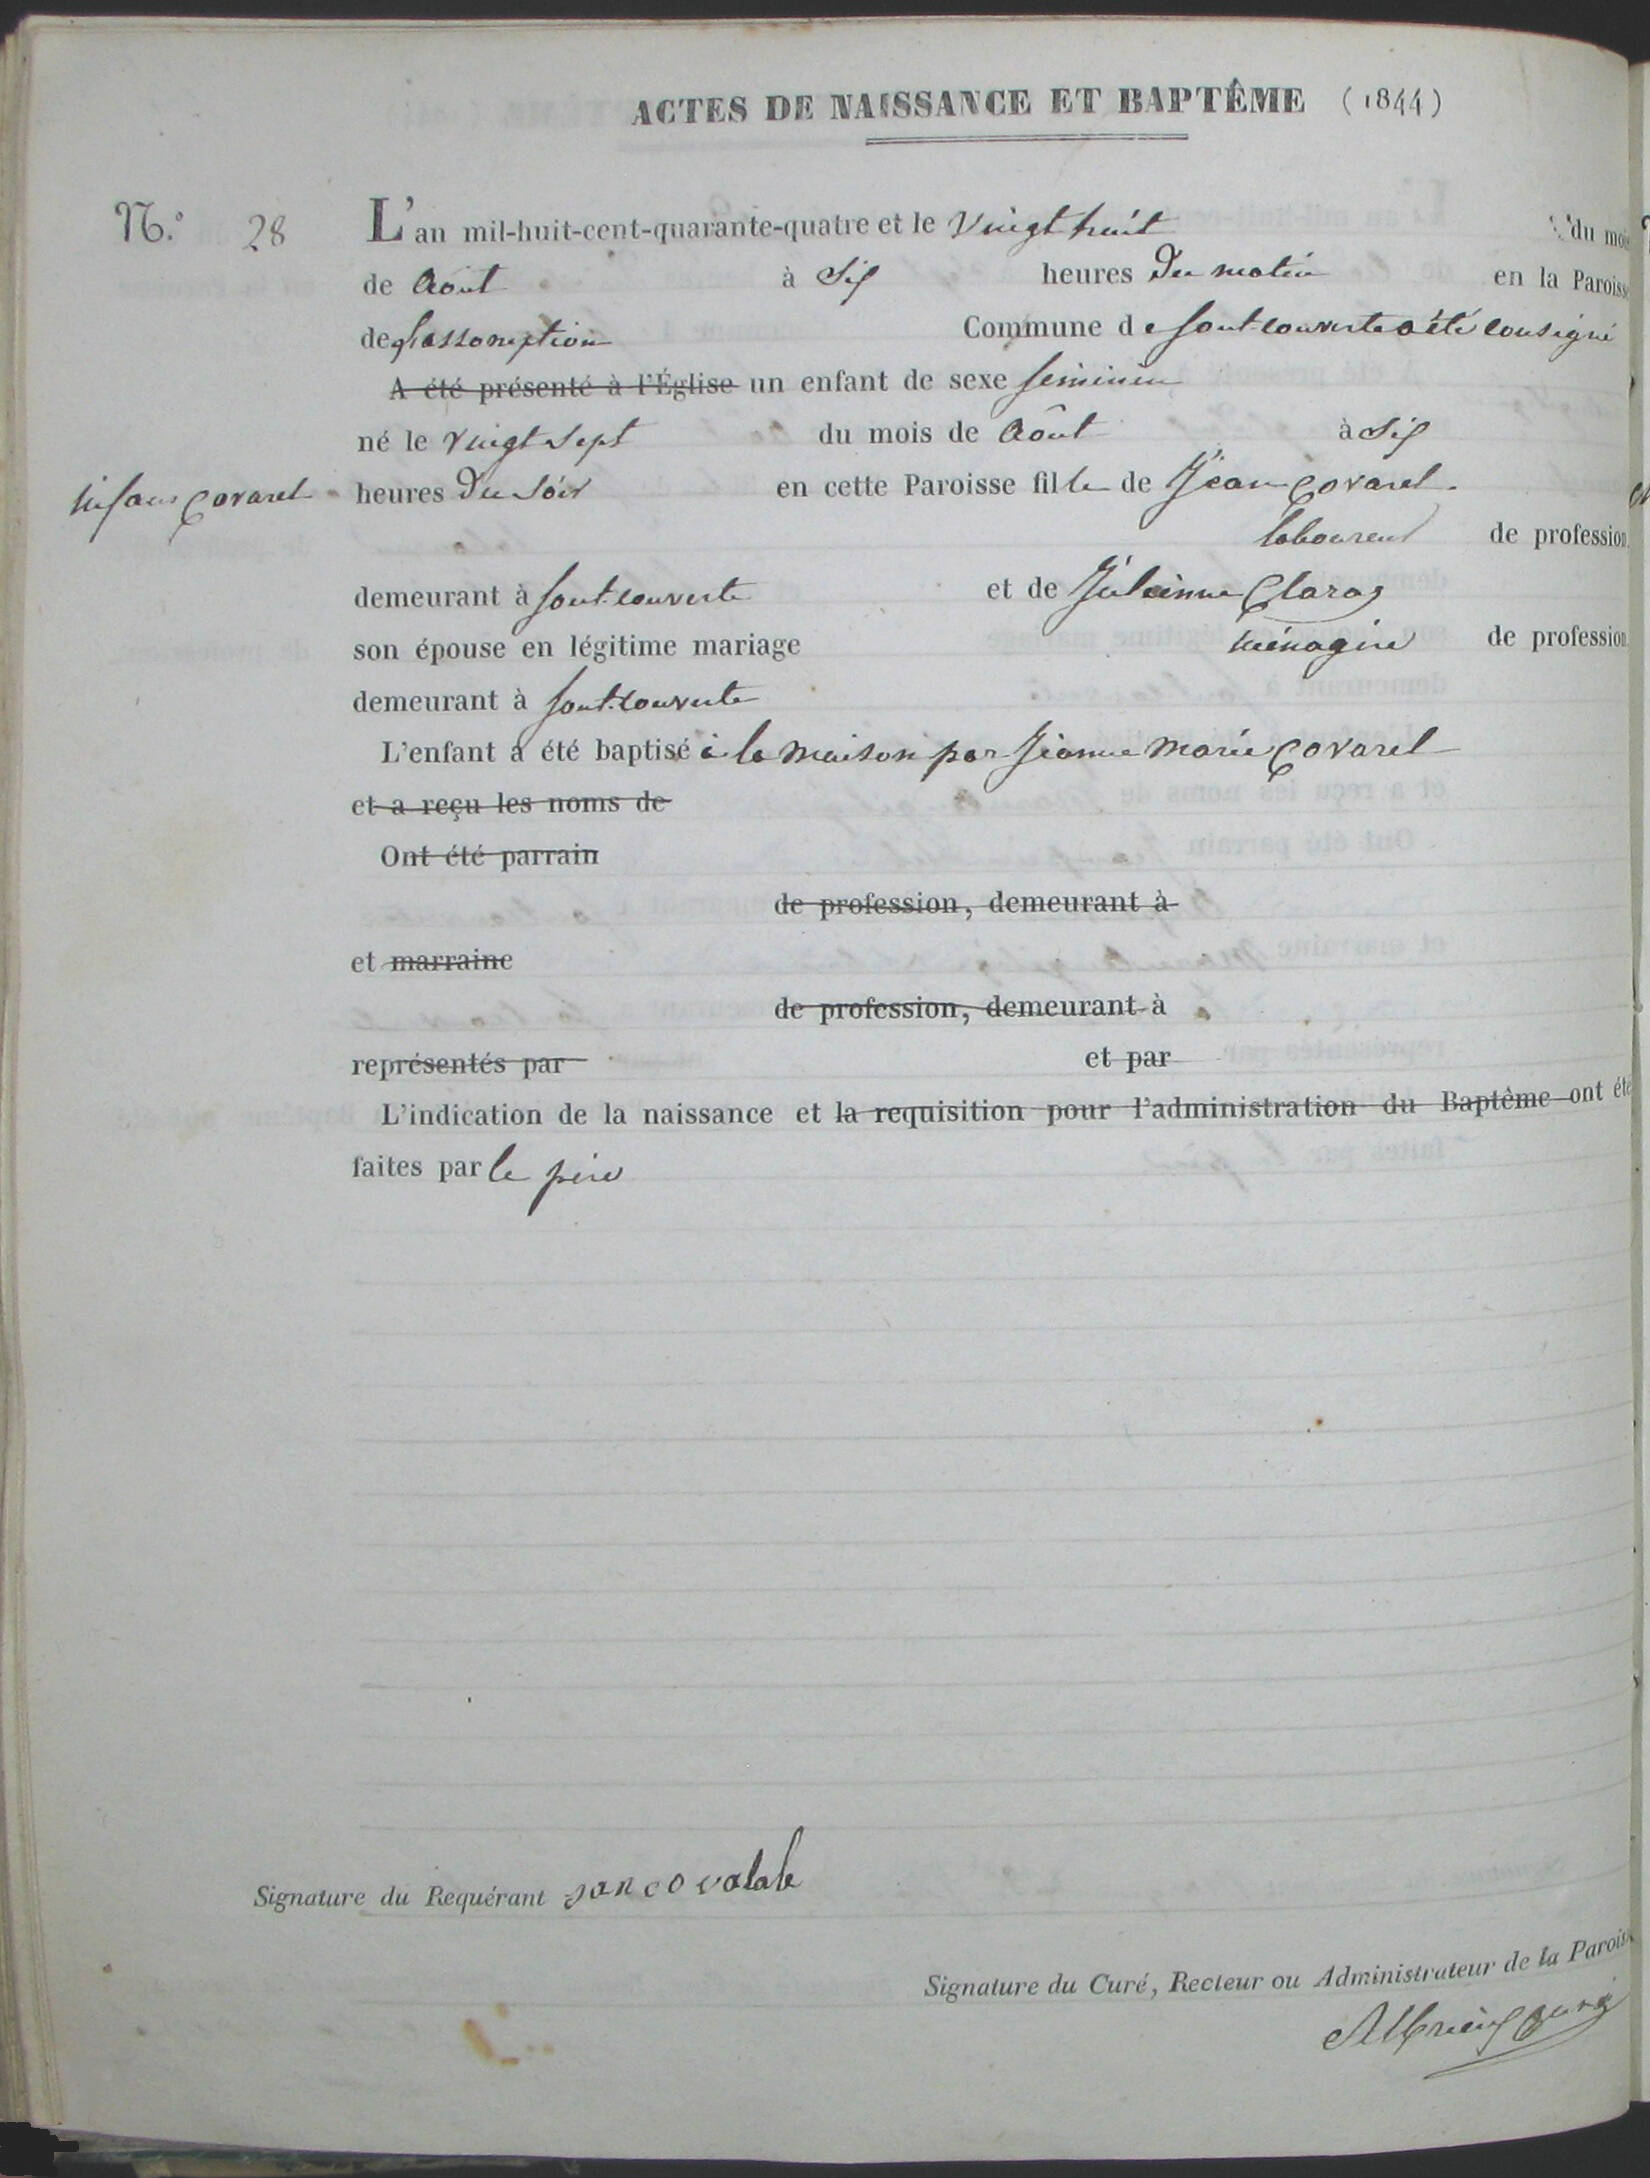 ACTES DE NAISSANCE ET BAPTÊME (1844)
N.º 28 L'an mil-huit-cent-quarante-quatre et le vingt huit du mois
de Août à Six heures du matin en la Paroisse
de l'assomption Commune de fontcouverte a été consigné
A été présenté à l'Église un enfant de sexe feminin
né le vingt sept du mois de Août à Six
infans Covarel heures du Soir en cette Paroisse fille de Jean Covarel.
laboureur de profession
demeurant à fontcouverte et de Julienne Claraz
son épouse en légitime mariage ménagère de profession
demeurant à fontcouverte
L'enfant a été baptisé à la maison par Jeanne Marie Covarel
et a reçu les noms de
Ont été parrain
de profession, demeurant à
et marraine
de profession, demeurant à
représentés par et par
L'indication de la naissance et la requisition pour l'administration du Baptême ont été
faites par le père
Signature du Requérant
Signature du Curé, Recteur ou Administrateur de la Parois